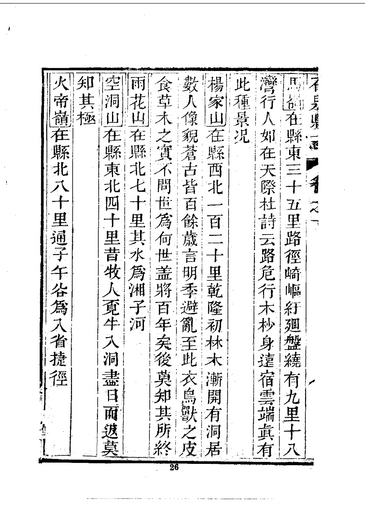 馬嶺在縣東三十五里路徑崎嶇紆廻盤繞有九里十八
灣行人如在天際杜詩云路危行木杪身遠宿雲端真有
此種景况
楊家山在縣西北一百二十里乾隆初林木漸開有洞居
數人像貌蒼古皆百餘歲言明季避亂至此衣鳥獸之皮
食草木之實不問世為何世蓋將百年矣後莫知其所終
雨花山在縣北七十里其水為湘子河
空洞山在縣東北四十里昔牧人覔牛入洞盡日而返莫
知其極
火帝嶺在縣北八十里通子午谷為入省捷徑
26